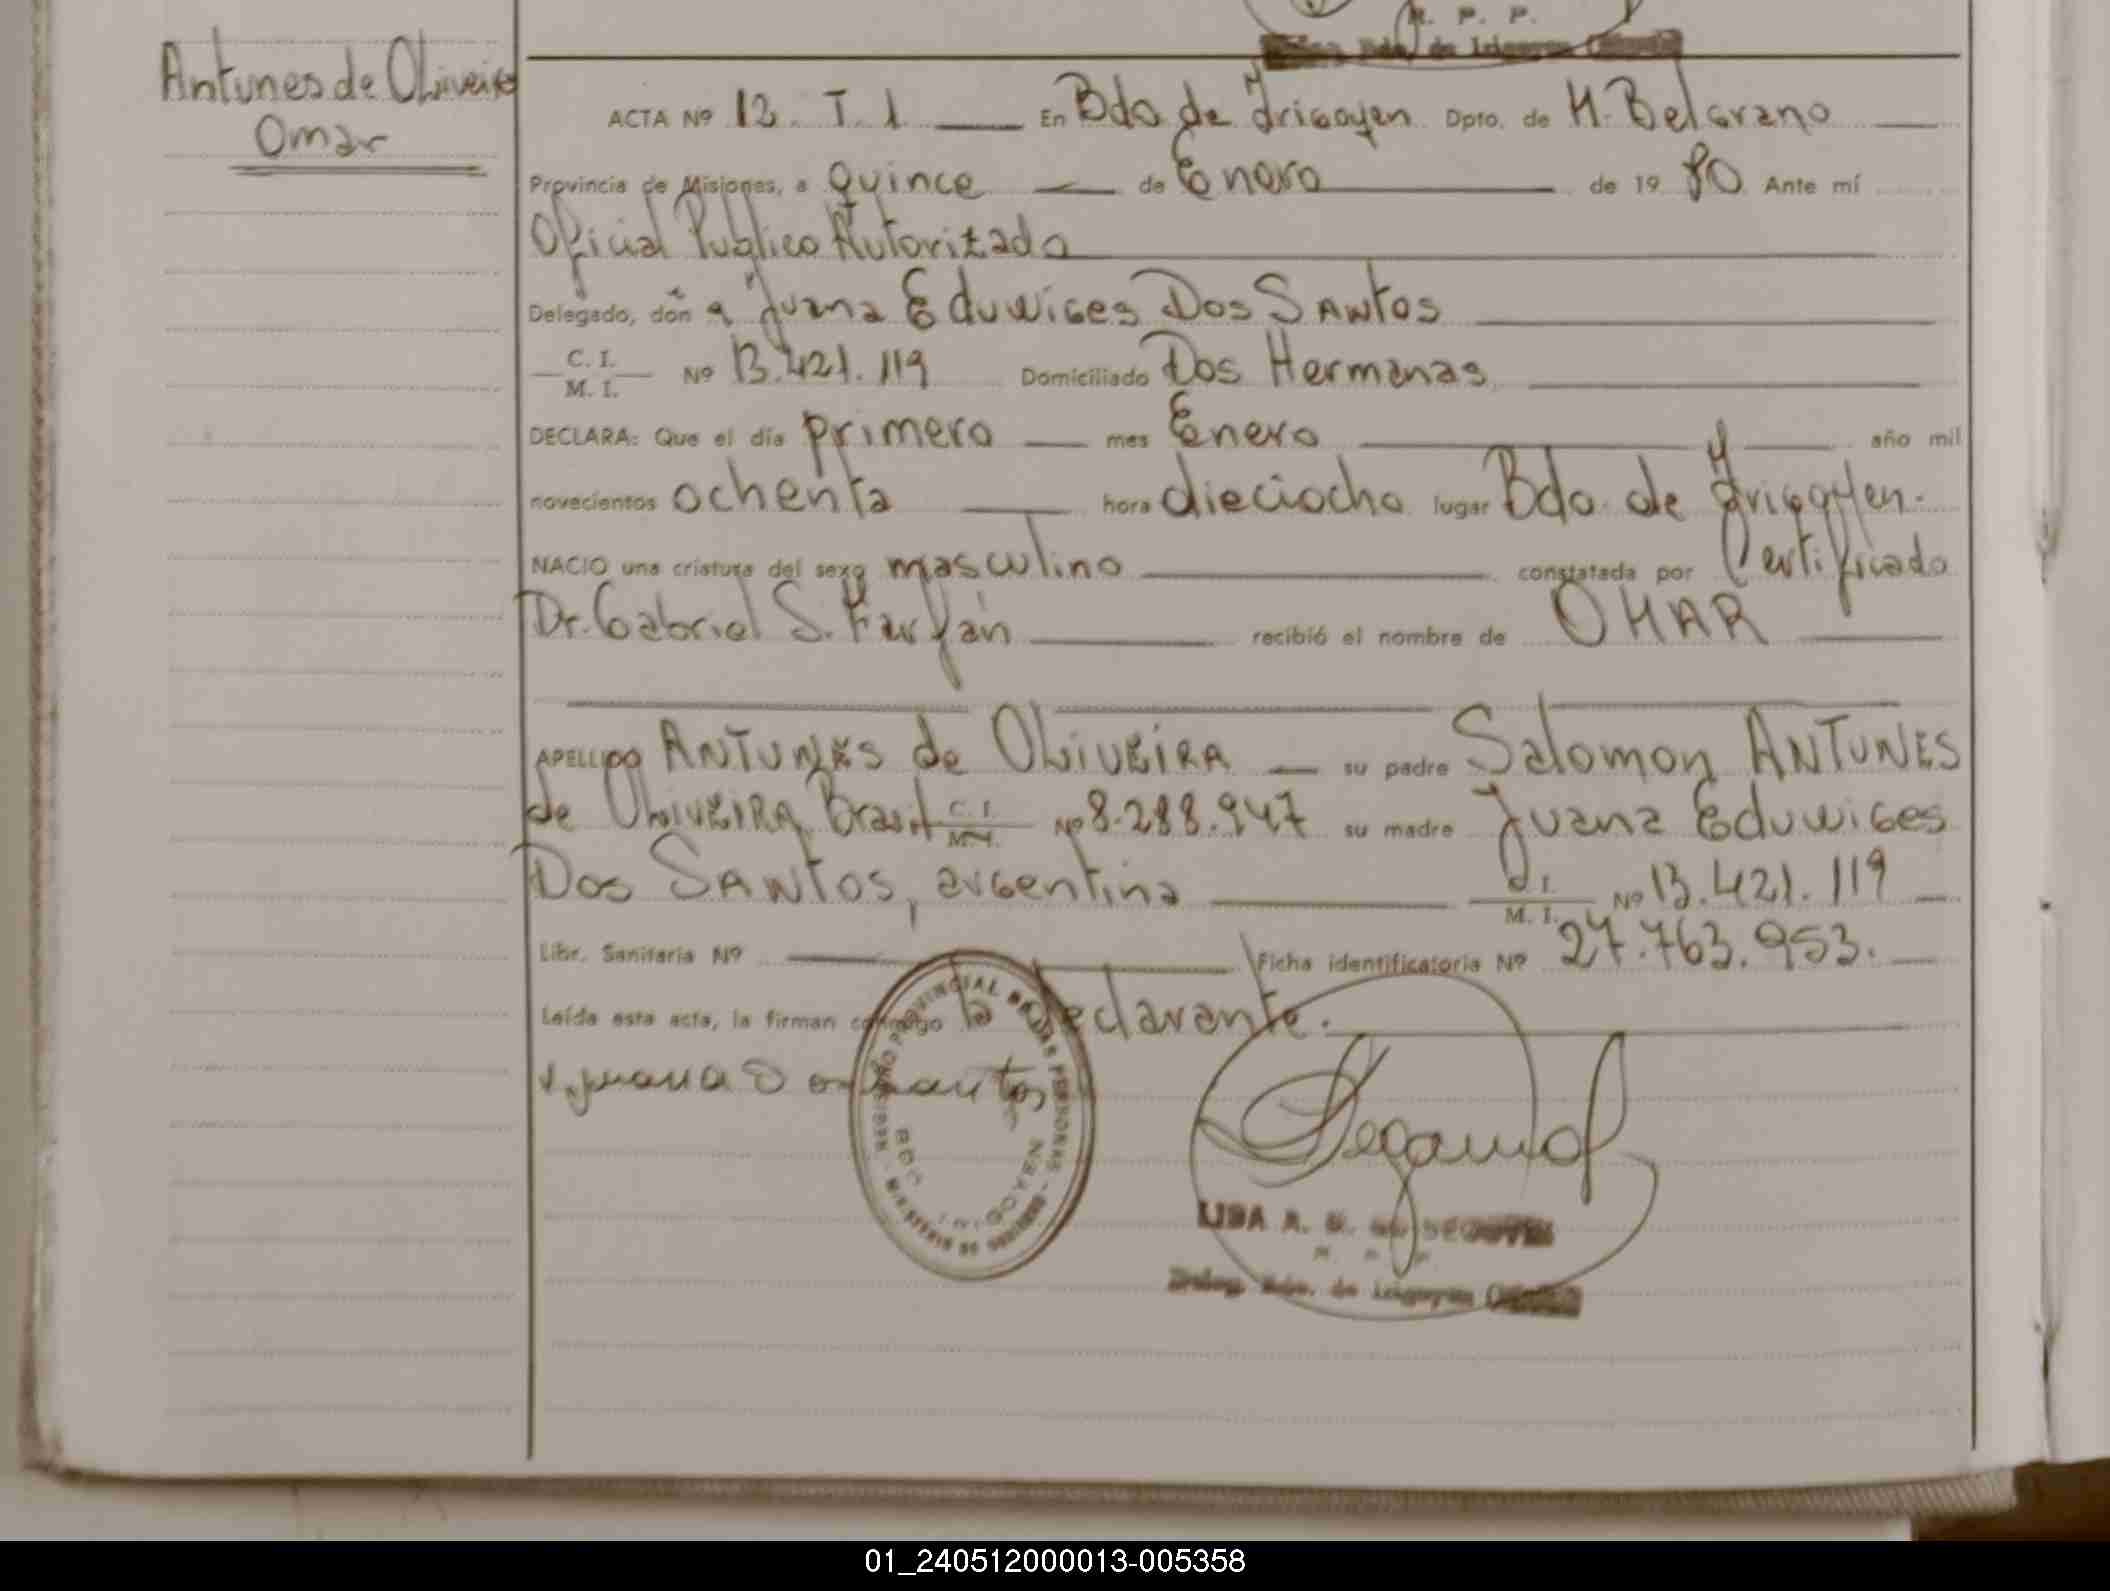 R. P. P.
Deleg. Bdo. de Irigoyen
Antunes de Oliveira
Omar
ACTA Nº 12. T. 1 En Bdo de Irigoyen Dpto. de M. Belgrano
Provincia de Misiones, a quince de Enero de 19 80 Ante mí
Oficial Publico Autorizado
Delegado, don a Juana Eduwiges Dos Santos
C. I.
M. I. Nº 13.421.119 Domiciliado Dos Hermanas
DECLARA: Que el día primero mes Enero año mil
novecientos ochenta hora dieciocho lugar Bdo. de Irigoyen.
NACIO una criatura del sexo masculino constatada por Certificado
Dr. Gabriel S. Farfán recibió el nombre de OMAR
APELLIDO ANTUNES de OLIVEIRA su padre Salomon ANTUNES
de OLIVEIRA, Brasil C. I. M. I. Nº 8.288.947 su madre Juana Eduwiges
Dos SANTOS, argentina M. I. Nº 13.421.119
Libr. Sanitaria Nº Ficha identificatoria Nº 27.763.953.
Leída esta acta, la firman conmigo la declarante.
juana D os santos
REGISTRO PROVINCIAL DE LAS PERSONAS
BDO IRIGOYEN
LIDA A.
R. P. P.
Deleg. Bdo. de Irigoyen
01_240512000013-005358